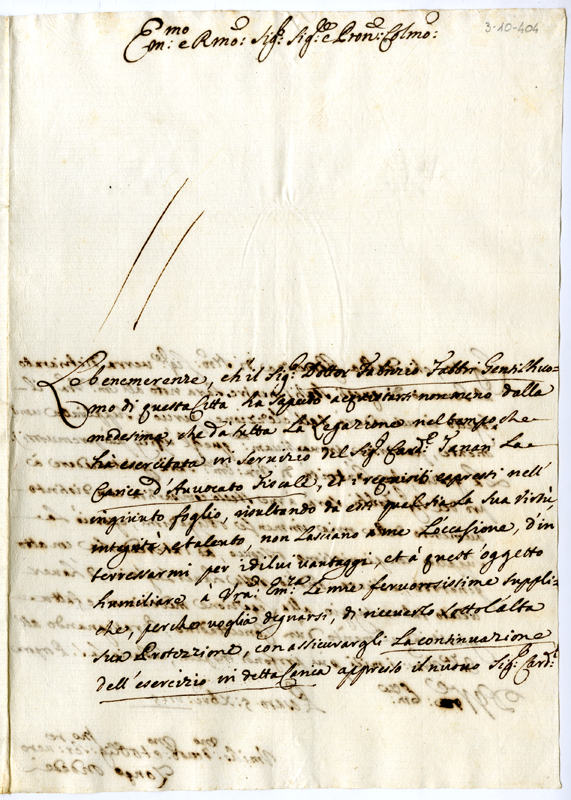 3-10-404
Em:mo e Rmo: Sig:r Sig:re e Pron: Colmo:
Le benemerenze, ch'il Sig:r Dottor Fabrizio Fattor Gentilhuo=
mo di questa Città ha saputo acquistarsi non meno dalla
medesima, che da tutta La Legazione nel tempo, che
ha esercitata in servizio del Sig:r Card:l Tanari La
Carica d'Auuocato Fiscale, et i requisiti espressi nell'
ingiunto foglio, risultando da essi qual sia La sua virtù,
integrità, e talento, non Lasciano à me L'occasione, d'in
terressarmi per i di lui vantaggi, et à quest'oggetto
humiliare à Vra: Em:za Le mie feruorosissime suppli=
che, perche voglia degnarsi, di riceuerlo sotto L'alta
sua Protezzione, con assicurargli La continuazione
dell'esercizio in detta Carica appresso il nuouo Sig:r Card:l